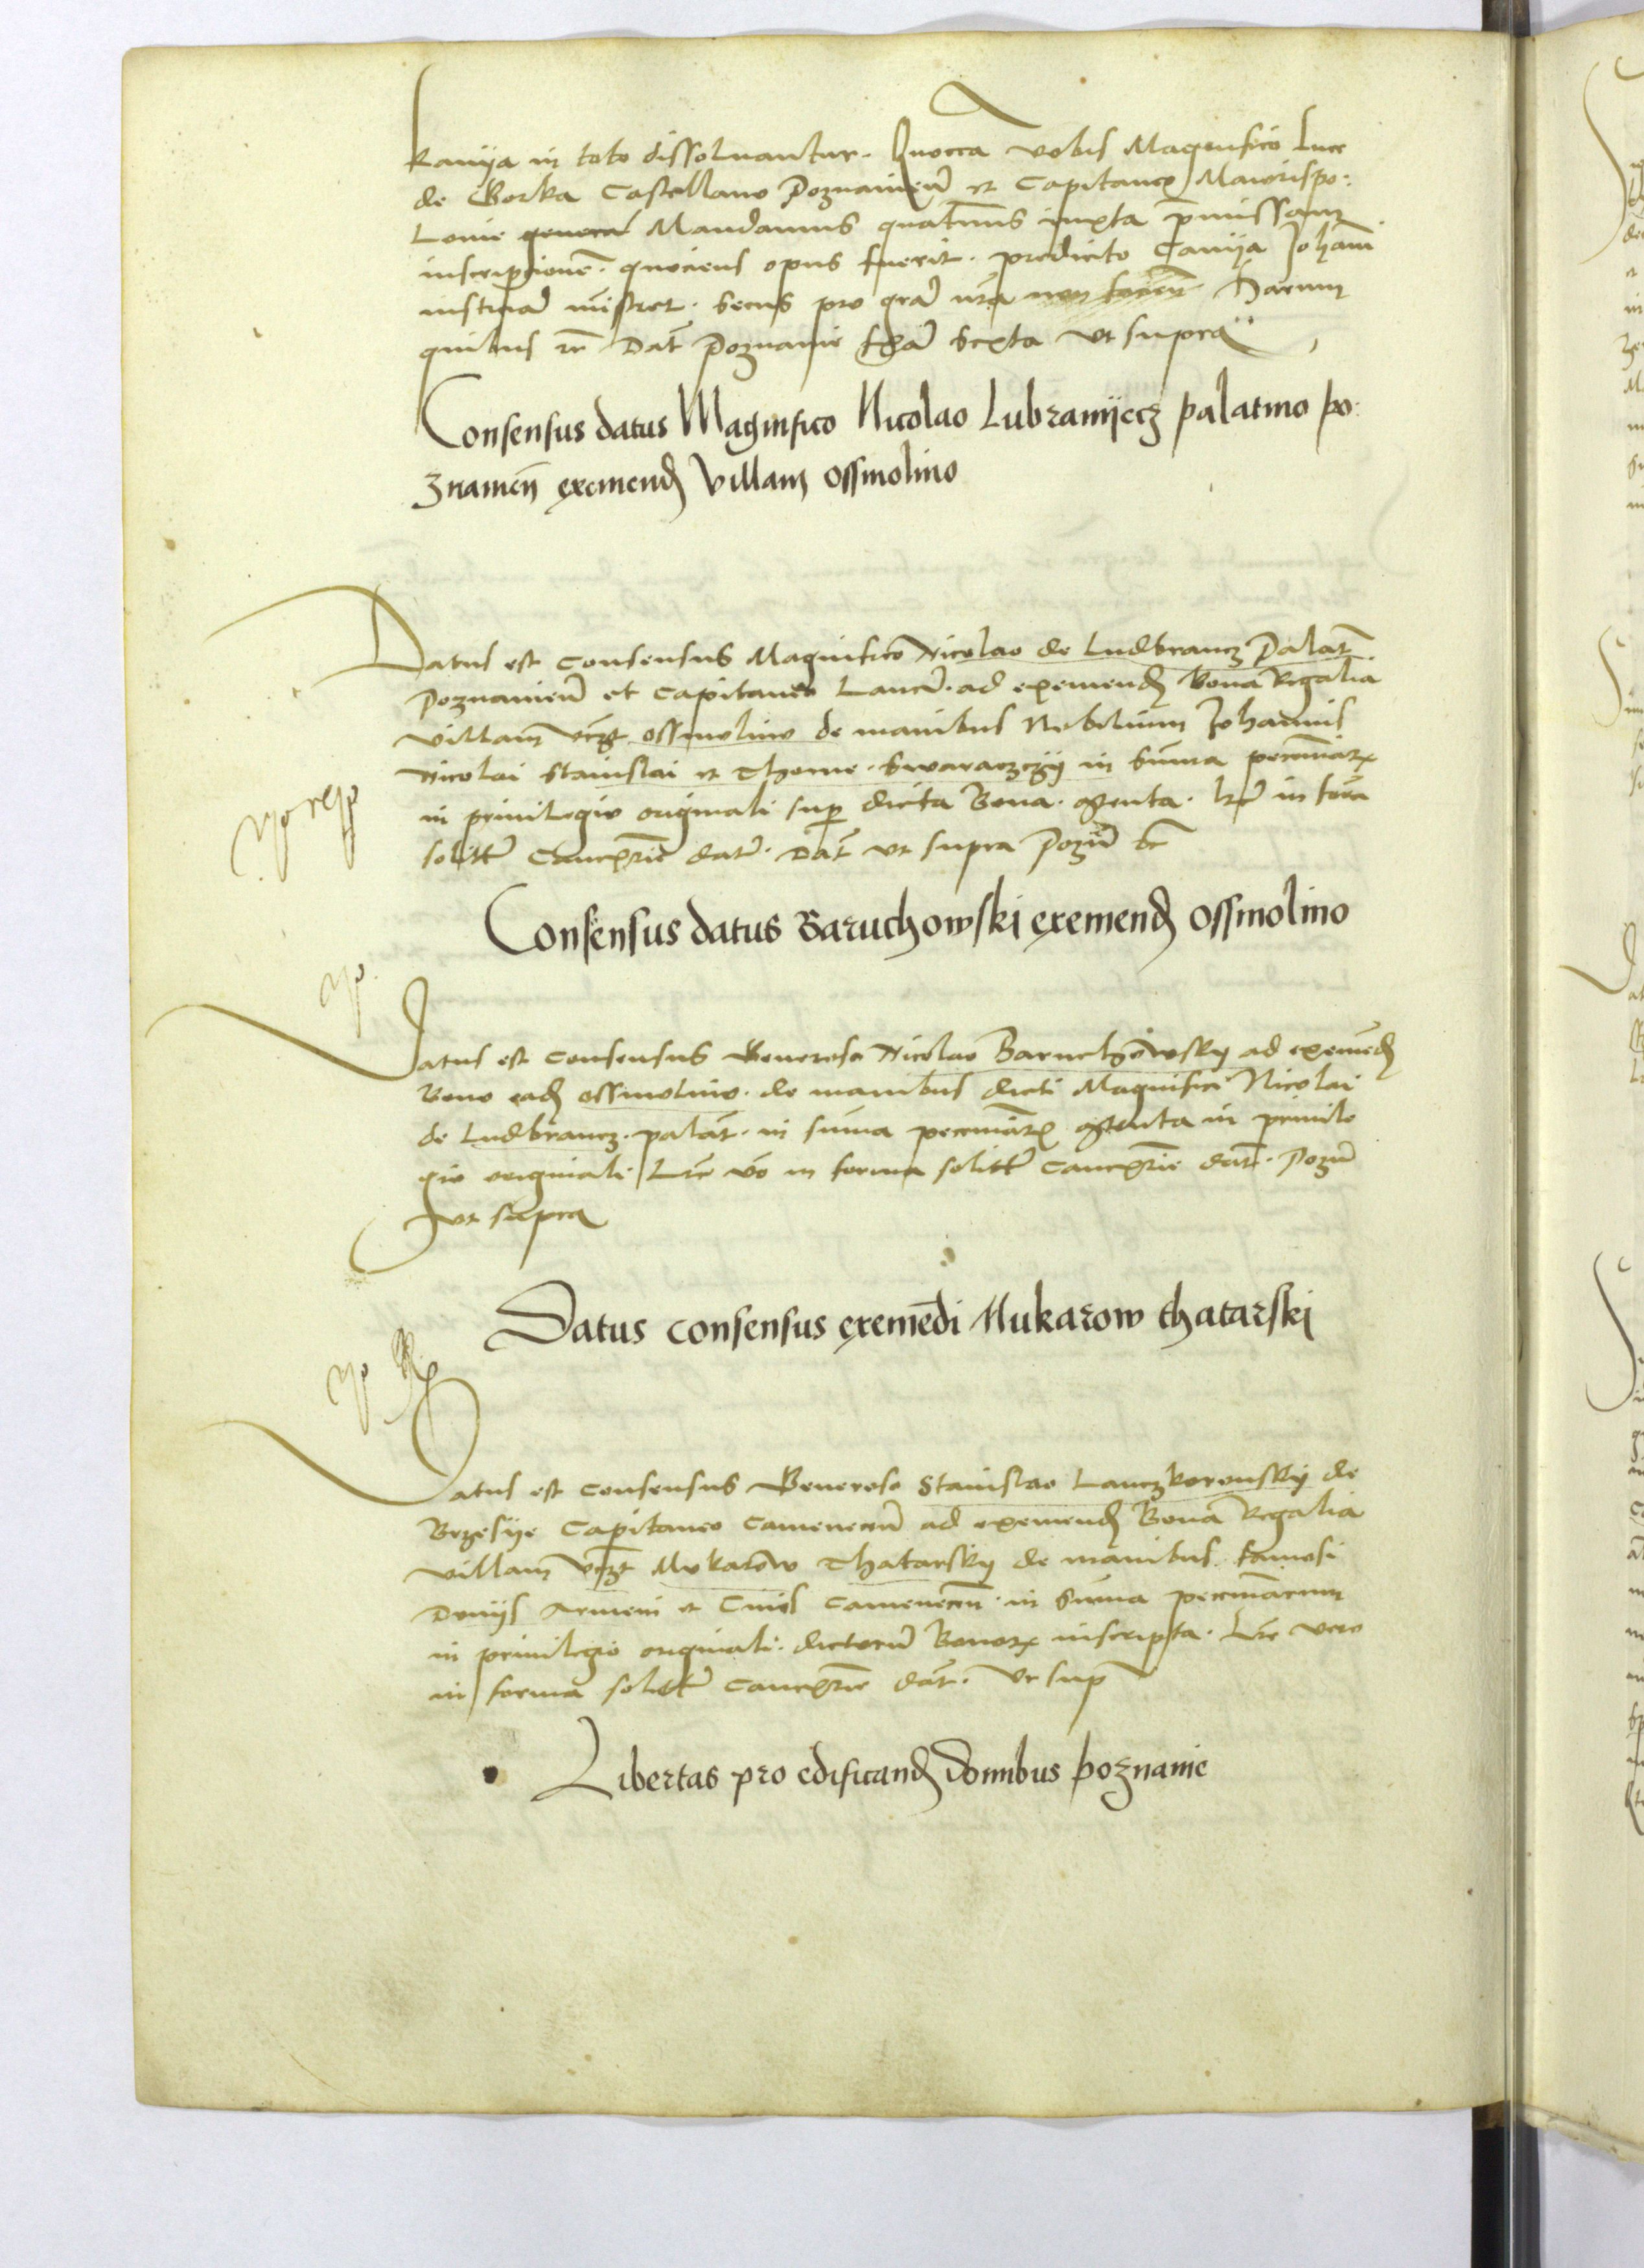 kanija in toto dissoluantur. Quocca vobis Magnifico Luce
de Gorka Castellano Poznanien et Capitaneo Maiorispo:
Lonie Mandamus quatenus iuxta pmissam
inscripcionem. quociens opus fuerit. predicto Canija Johanni
iusticiam secus pro gra Harum
quibus rc Dat Poznanie feria sexta Vt supra
Consensus datus Magnifico Nicolao Lubranijecz palatino po:
Znanien exemend Villam Ossmolino
Datus est Consensus Magnifico Nicolao de Ludbrancz Palat
Poznanien et Capitaneo Lancic. ad exemend bona Regalia
villam vcz ossmolino de manibus Nobilium Johannis
Nicolai Stanislai et Thome. Swaraczczij in suma pecuniar
in priuilegio originali sup dicta Bona. Lre in forma
solitt Cancrie dat. Dat vt supra Pozn
Consensus datus Baruchowski exemend Ossmolino
Datus est Consensus Generoso Nicolao Baruchowskij ad exemend
Bona ead ossmolino. de manibus dicti Magnifici Nicolai
de Ludbrancz. palat. in suma pecuniar in priuile
gio originali. Lre vo in forma solitt Cancrie dat. Pozn
Vt supra
Datus consensus exemedi Mukarow thatarski
Datus est Consensus Generoso Stanislao Lanczkorunskij de
Brzesije Capitaneo Camenecen ad exemend Bona Regalia
villam vcz Mukarow Thatarskij de manibus famosi
Armeni et Camenecen. in suma pecuniarum
in priuilegio originali. dictorum Bonor inscripta. Lre vero
in forma solitt Cancrie dat. Vt sup
Libertas pro edificand domibus poznanie